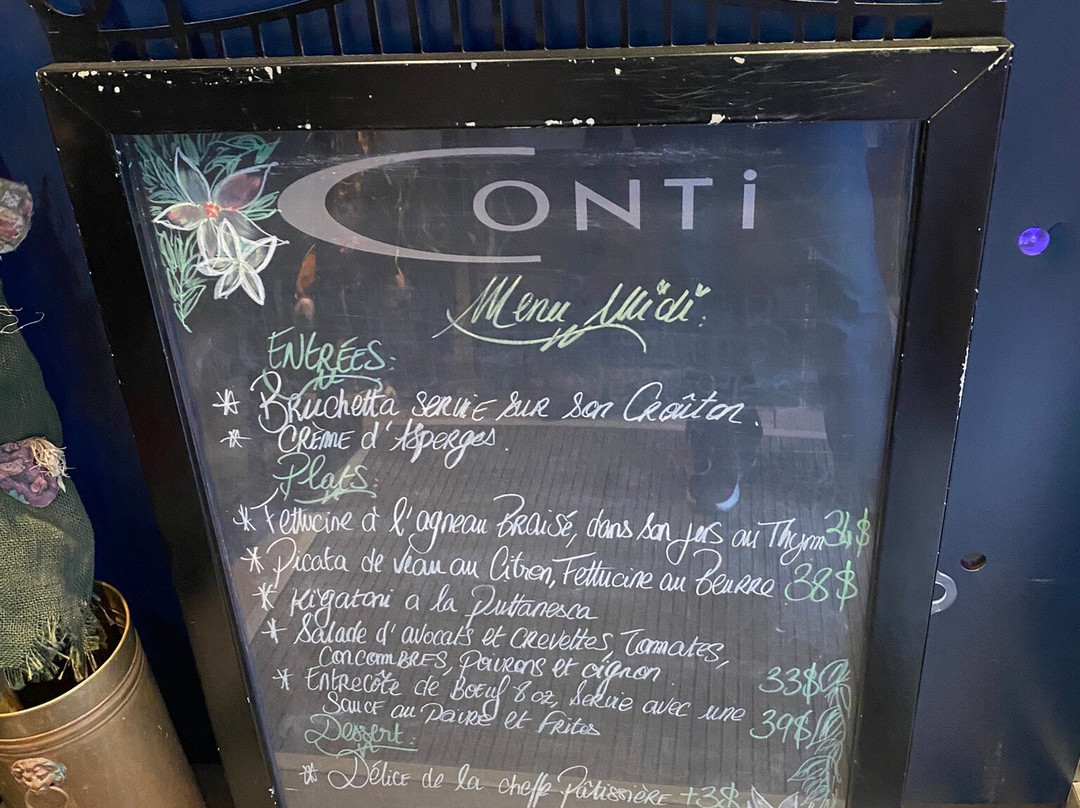 CONTi
Menu Midi.
ENTRÉES:
* Bruchetta SERVIE SUR Son Croûton.
* CRÈME d'Asperges.
Plats:
* Fettucine à l'agneau BRAISÉ, dans son jus au Thym 34$
* Picata de veau au Citron, Fettucine au BEURRE 38$
* Rigatoni a la Puttanesca
* Salade d'avocats et CREVETTES, Tomates,
CONCOMBRES, Poivrons et oignon 33$
* Entrecôte de Boeuf 8 oz, Servie avec une
SAUCE au POIVRE et Frites 39$
Dessert:
* Délice de la cheffe Pâtissière +3$